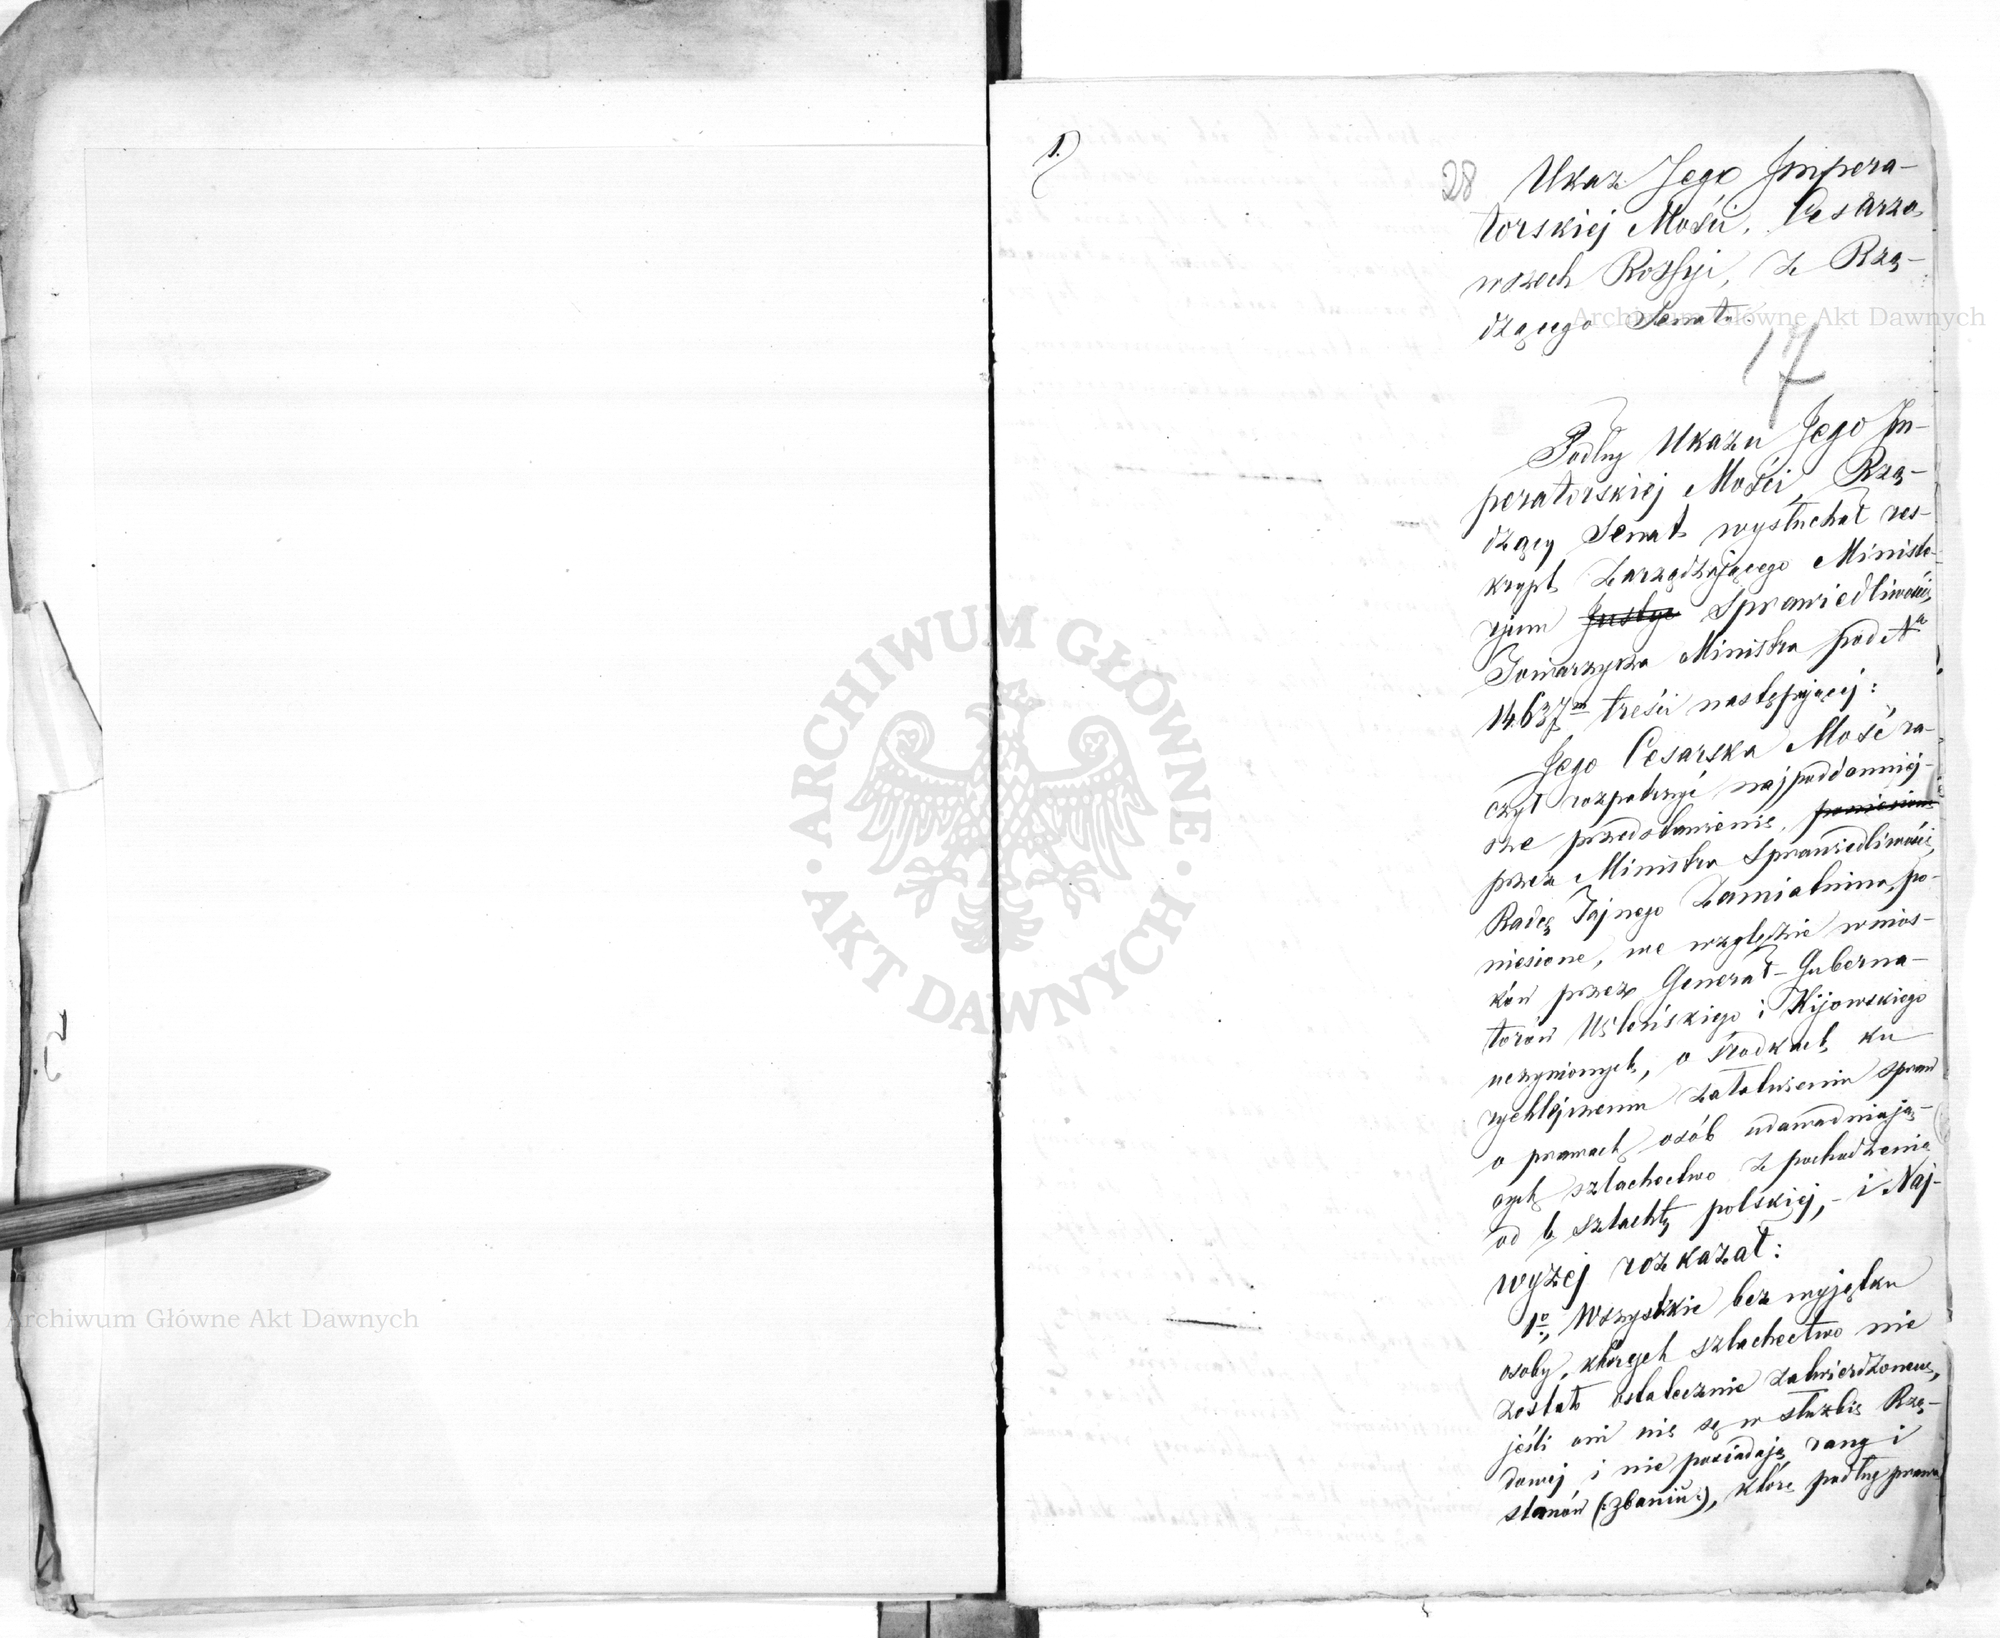 1.)
28
Ukaz Jego Impera-
torskiej Mości, Cesarza
wszech Rossyi, z Rzą-
dzącego Senatu.
17
Podług Ukazu Jego Im-
peratorskiej Mości, Rzą-
dzący Senat wysłuchał res-
krypt Zarządzającego Ministe-
ryum Justyc Sprawiedliwości,
Towarzysza Ministra pod №
14.637m treści następującej:
Jego Cesarska Mość ra-
czył rozpatrzyć najpoddanniej-
sze przedstawienie, poniesione
przez Ministra Sprawiedliwości,
Radcę Tajnego Zamiatnina, po-
niesione, we względzie wnios-
ków przez Generał-Guberna-
torów Wileńskiego i Kijowskiego
uczynionych, o środkach ku
rychlejszemu załatwieniu spraw
o prawach osób udawadniają-
cych szlachectwo z pochodzenia
od b. szlachty polskiej, - i Naj-
wyżej rozkazał:
1o, Wszystkie bez majątku
osoby, których szlachectwo nie
zostało ostatecznie zatwierdzonem,
jeśli oni nie są w służbie Rzą-
dowej i nie posiadają rang i
stanów (:zbaniu:), które podług prawa
Archiwum Główne Akt Dawnych
Archiwum Główne Akt Dawnych
ARCHIWUM GŁÓWNE · AKT DAWNYCH ·